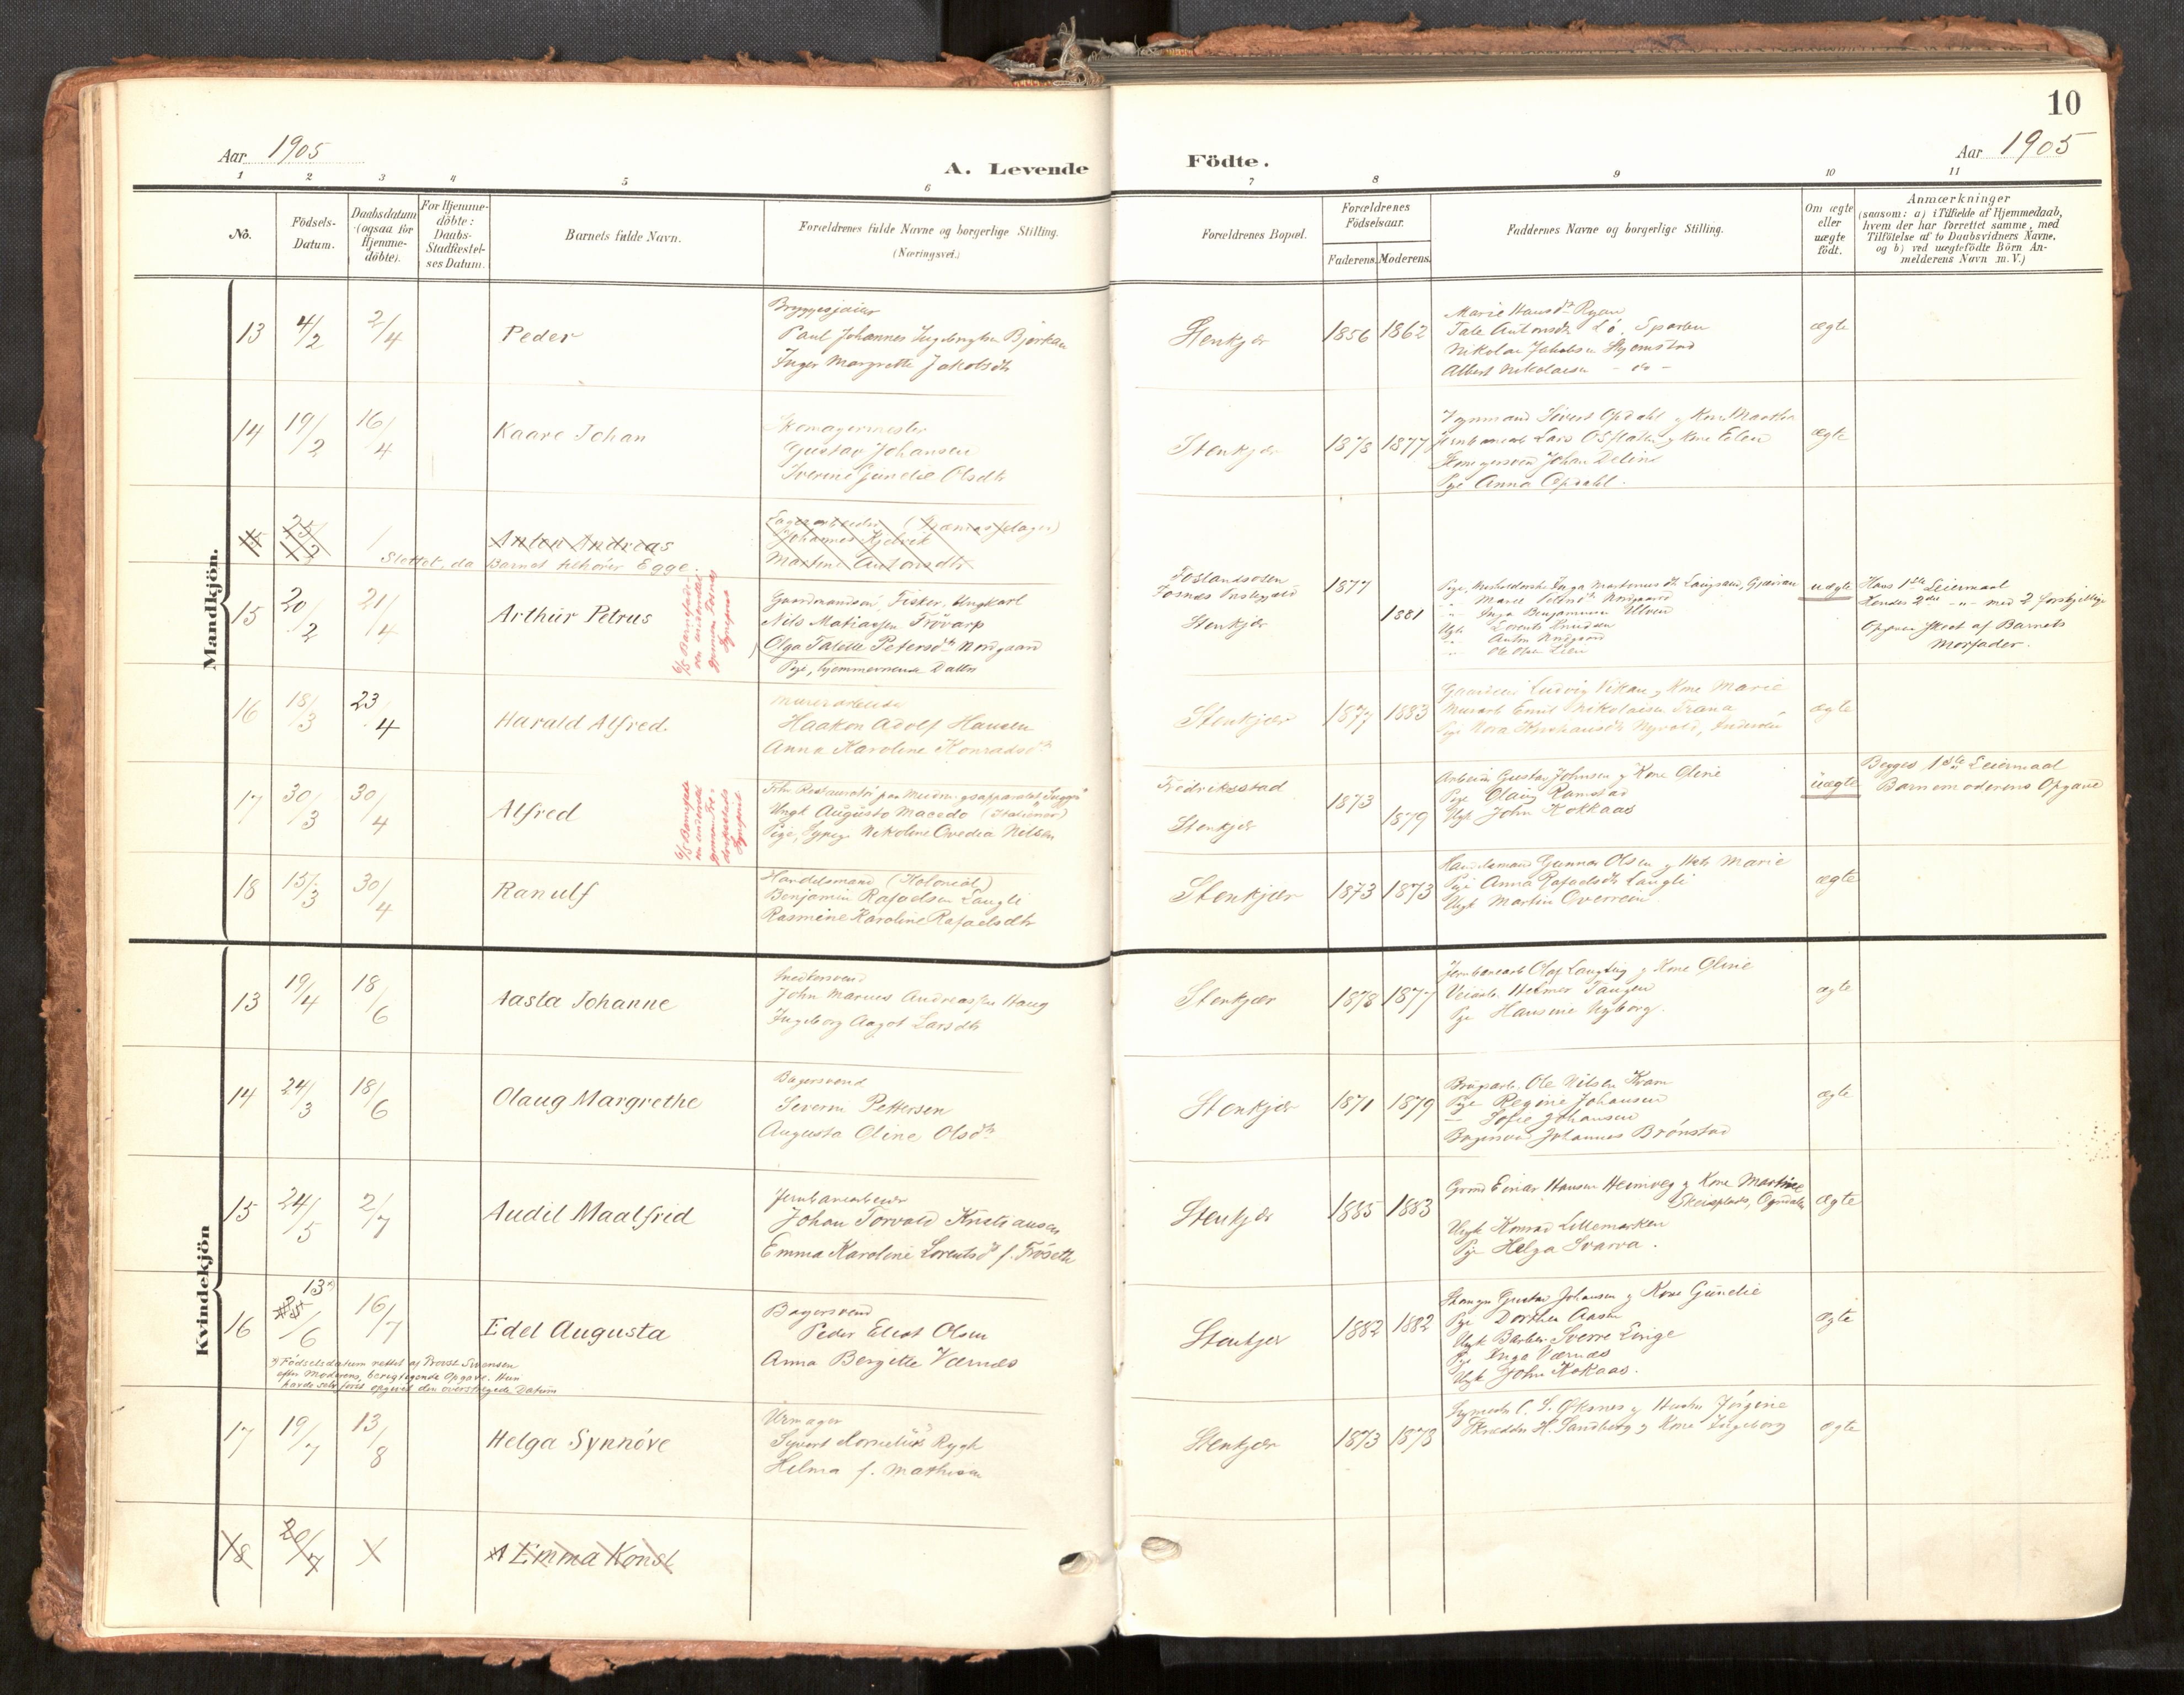 10
Aar 1905
A. Levende Födte.
Aar 1905
1 2 3 4 5 6 7 8 9 10 11
No.
Födsels-Datum.
Daabsdatum (ogsaa for Hjemme-döbte).
For Hjemme-döbte: Daabs-Stadfæstel-ses Datum.
Barnets fulde Navn.
Forældrenes fulde Navne og borgerlige Stilling.
(Næringsvei.)
Forældrenes Bopæl.
Forældrenes Födselsaar.
Faderens. Moderens.
Faddernes Navne og borgerlige Stilling.
Om ægte eller uægte födt.
Anmærkninger
(saasom: a) i Tilfælde af Hjemmedaab,
hvem der har forrettet samme, med
Tilföielse af to Daabsvidners Navne,
og b) ved uægtefödte Börn An-
melderens Navn m. V.)
Mandkjön.
13 4/2 2/4 Peder
Bryggesjauer
Paul Johannes Ingebrigtsen Bjørkan
Inger Margrethe Jakobsdtr
Stenkjær 1856 1862
Marie Hansdtr Ryan
Tale Antonsdtr Lø, Sparbu
Nikolai Jakobsen
Albert Nikolaisen - do -
ægte
14 19/2 16/4 Kaare Johan
Skomagermester
Gustav Johansen
Iverine Gunelie Olsdtr
Stenkjær 1878 1877
Sivert Opdahl og Kone Martha
Jernbanearb Lars Osflaten og Kone Elen
Johan Delin
Pige Anna Opdahl.
ægte
15 25/12 Anton Andreas
Johannes Kjelvik
Martine Antonsdtr
Slettet, da Barnet tilhører Egge.
15 20/2 21/4 Arthur Petrus
6/5 Barnefade-
ren underrettet
gjennem Fosnes
Sogneprest
Gaardmandssøn, Fisker, Ungkarl
Nils Matiassen Trøvarp
Olga Talette Petersdtr Nordgaard
Pige, hjemmeværende Datter
Foslandsosen
Fosnes Prestegjeld
Stenkjær
1877
1881
Inga Martinusdtr Langsand, Gjæsran
" Marie Pettersdtr Nordgaard
" Inga Benjaminsen Ulven
Ugk Lorents Knudsen
" Anton Nordgaard
" Ole Olsen Lein
uægte
Hans 1ste Leiermaal
Hendes 2det -"- med 2 forskjellige
Opgaven skeet af Barnets
Morfader.
16 18/3 23/4 Harald Alfred.
Murerarbeider
Haakon Adolf Hansen
Anna Karoline Konradsdtr
Stenkjær 1877 1883
Ludvig Vikan og Kone Marie
Murarb Emil Nikolaisen Trana
Pige Nora Nyvold, Inderøen
ægte
17 30/3 30/4 Alfred
6/5 Barnefade-
ren underrettet
gjennem Fre-
drikstads
Sogneprest
Ungk Augusto Macedo (Italiener)
Pige, Sypige Nikoline Ovedia Nilsen
Fredriksstad
Stenkjær
1873
1879
Arbeider Gustav Johnsen og Kone Oline
Pige Olaug Ramstad
Ugk John Kokkaas
uægte
Begges 1ste Leiermaal
Barnemoderens Opgave
18 15/3 30/4 Ranulf
Handelsmand (Kolonial)
Benjamin Rafaelsen Langli
Rasmine Karoline Rafaelsdtr
Stenkjær 1873 1873
Handelsmand Gunnar Olsen og Hst Marie
Pige Anna Rafaelsdtr Langli
Ungk Martin Overrein
ægte
Kvindekjön
13 19/4 18/6 Aasta Johanne
Snedkersvend
John Marius Andreassen Haug
Ingeborg Aagot Larsdtr
Stenkjær 1878 1877
Jernbanearb Olaf Langtug og Kone Oline
Veiarb. Helmer Tangen
Pige Hansine Nyborg.
ægte
14 24/3 18/6 Olaug Margrethe
Bagersvend
Severin Pettersen
Augusta Oline Olsdtr
Stenkjær 1871 1879
Brugsarb. Ole Nilsen Kvam
Pige Regine Johansen
— Sofie Johansen
Bagersvend Johannes Brønstad
ægte
15 24/5 2/7 Audil Maalfrid
Jernbanearbeider
Johan Torvald Kristiansen
Emma Karoline Lorentsdtr f. Frøseth
Stenkjær 1885 1883
Grmd Einar Hansen Heimveg og Kone Martine
Skeisplads, Ogndalen
Ungk Konrad Lillemarken
Pige Helga Svarva.
ægte
16 13x)/6 16/7 Edel Augusta
Bagersvend
Peder Eliot Olsen
Anna Bergitte Værnes
x) Födselsdatum rettet af Provst Svensen
efter Moderens berigtigende Opgave. Hun
havde selv først opgivet den overstrøgede Datum
Stenkjer 1882 1882
Gustav Johansen og Kone Gunelie
Pige Dorthea Aasen
Ungk Barber Sverre Eirige
Pige Inga Værnes
Ungk John Kokaas.
ægte
17 19/7 13/8 Helga Synnöve
Urmager
Syvert Kornelius Rygh
Helma f. Mathisen
Stenkjær 1873 1878
C. S. Øksnes og Hustru Jørgine
Skrædder H. Sandberg og Kone Ingeborg
ægte
18 20/7 Emma Konst